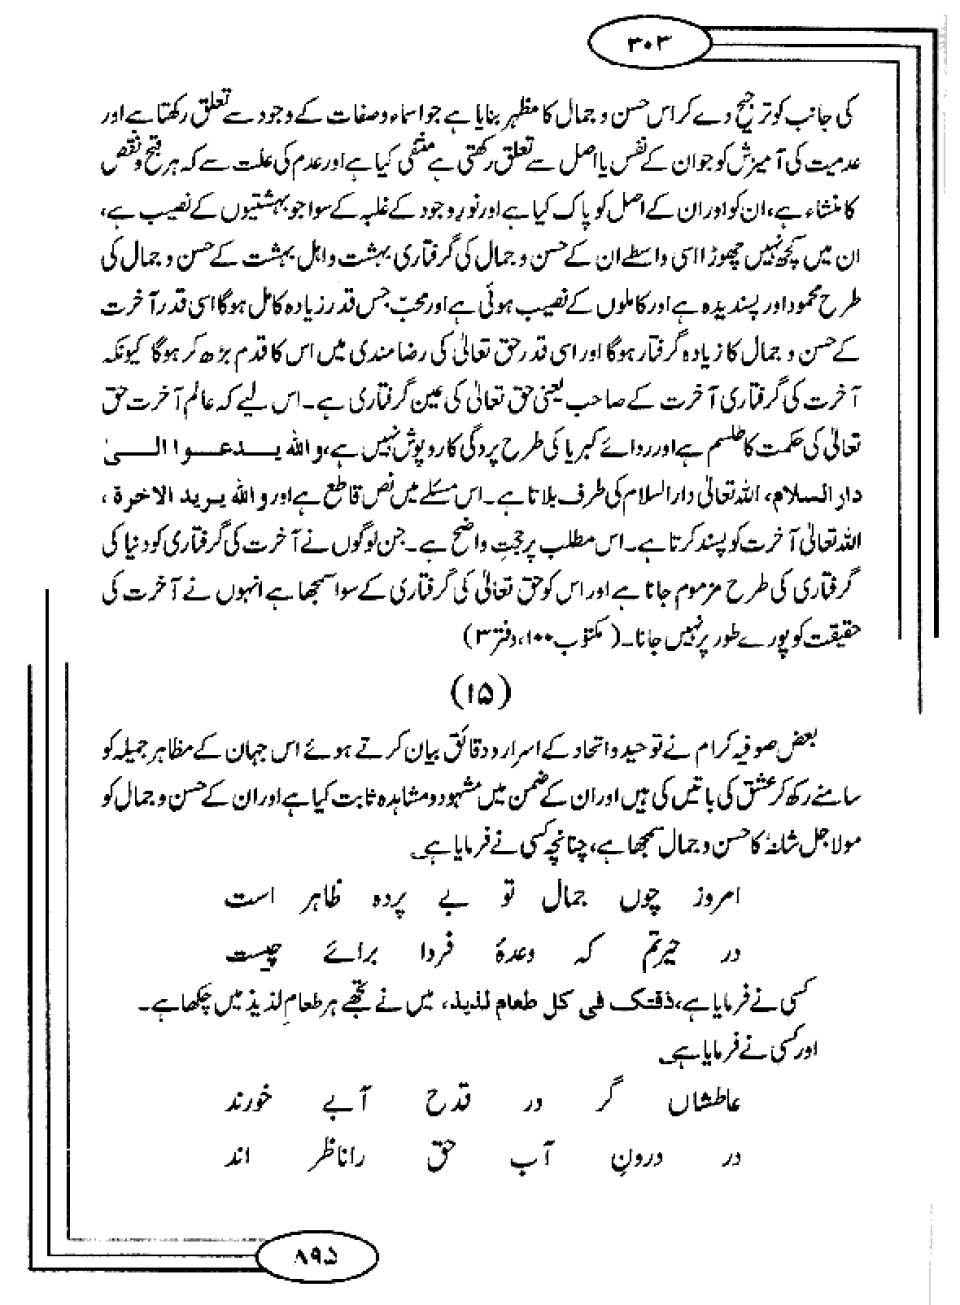 ۳۰۳
کی جانب کو ترجیح دے کر اس حسن و جمال کا مظہر بنایا ہے جو اسماء و صفات کے وجود سے تعلق رکھتا ہے اور
عدمیت کی آمیزش کو جو ان کے نفس یا اصل سے تعلق رکھتی ہے منتفی کیا ہے اور عدم کی علت سے کہ ہر قبح و نقص
کا منشاء ہے، ان کو اور ان کے اصل کو پاک کیا ہے اور نورِ وجود کے غلبہ کے سوا جو بہشتیوں کے نصیب ہے،
ان میں کچھ نہیں چھوڑا اسی واسطے ان کے حسن و جمال کی گرفتاری بہشت و اہل بہشت کے حسن و جمال کی
طرح محمود اور پسندیدہ ہے اور کاملوں کے نصیب ہوئی ہے اور محبّ جس قدر زیادہ کامل ہوگا اسی قدر آخرت
کے حسن و جمال کا زیادہ گرفتار ہوگا اور اسی قدر حق تعالیٰ کی رضامندی میں اس کا قدم بڑھ کر ہوگا کیونکہ
آخرت کی گرفتاری آخرت کے صاحب یعنی حق تعالیٰ کی عین گرفتاری ہے۔ اس لیے کہ عالمِ آخرت حق
تعالیٰ کی حکمت کا طلسم ہے اور ردائے کبریا کی طرح پردگی کا روپوش نہیں ہے، واللہ یدعوا الیٰ
دار السلام، اللہ تعالیٰ دارالسلام کی طرف بلاتا ہے۔ اس مسئلے میں نص قاطع ہے اور واللہ یرید الاخرۃ،
اللہ تعالیٰ آخرت کو پسند کرتا ہے۔ اس مطلب پر حجتِ واضح ہے۔ جن لوگوں نے آخرت کی گرفتاری کو دنیا کی
گرفتاری کی طرح مزموم جانا ہے اور اس کو حق تعالیٰ کی گرفتاری کے سوا سمجھا ہے انہوں نے آخرت کی
حقیقت کو پورے طور پر نہیں جانا۔ (مکتوب ۱۰۰، دفتر ۳)
(۱۵)
بعض صوفیہ کرام نے توحید و اتحاد کے اسرار و دقائق بیان کرتے ہوئے اس جہان کے مظاہر جمیلہ کو
سامنے رکھ کر عشق کی باتیں کی ہیں اور ان کے ضمن میں مشہود و مشاہدہ ثابت کیا ہے اور ان کے حسن و جمال کو
مولا جل شانہٗ کا حسن و جمال سمجھا ہے، چنانچہ کسی نے فرمایا ہے
امروز چوں جمال تو بے پردہ ظاہر است
در حیرتم کہ وعدۂ فردا برائے چیست
کسی نے فرمایا ہے، ذقتک فی کل طعام لذیذ، میں نے تجھے ہر طعامِ لذیذ میں چکھا ہے۔
اور کسی نے فرمایا ہے
عاطشاں گر در قدح آبے خورند
در درونِ آب حق را ناظر اند
۸۹۵